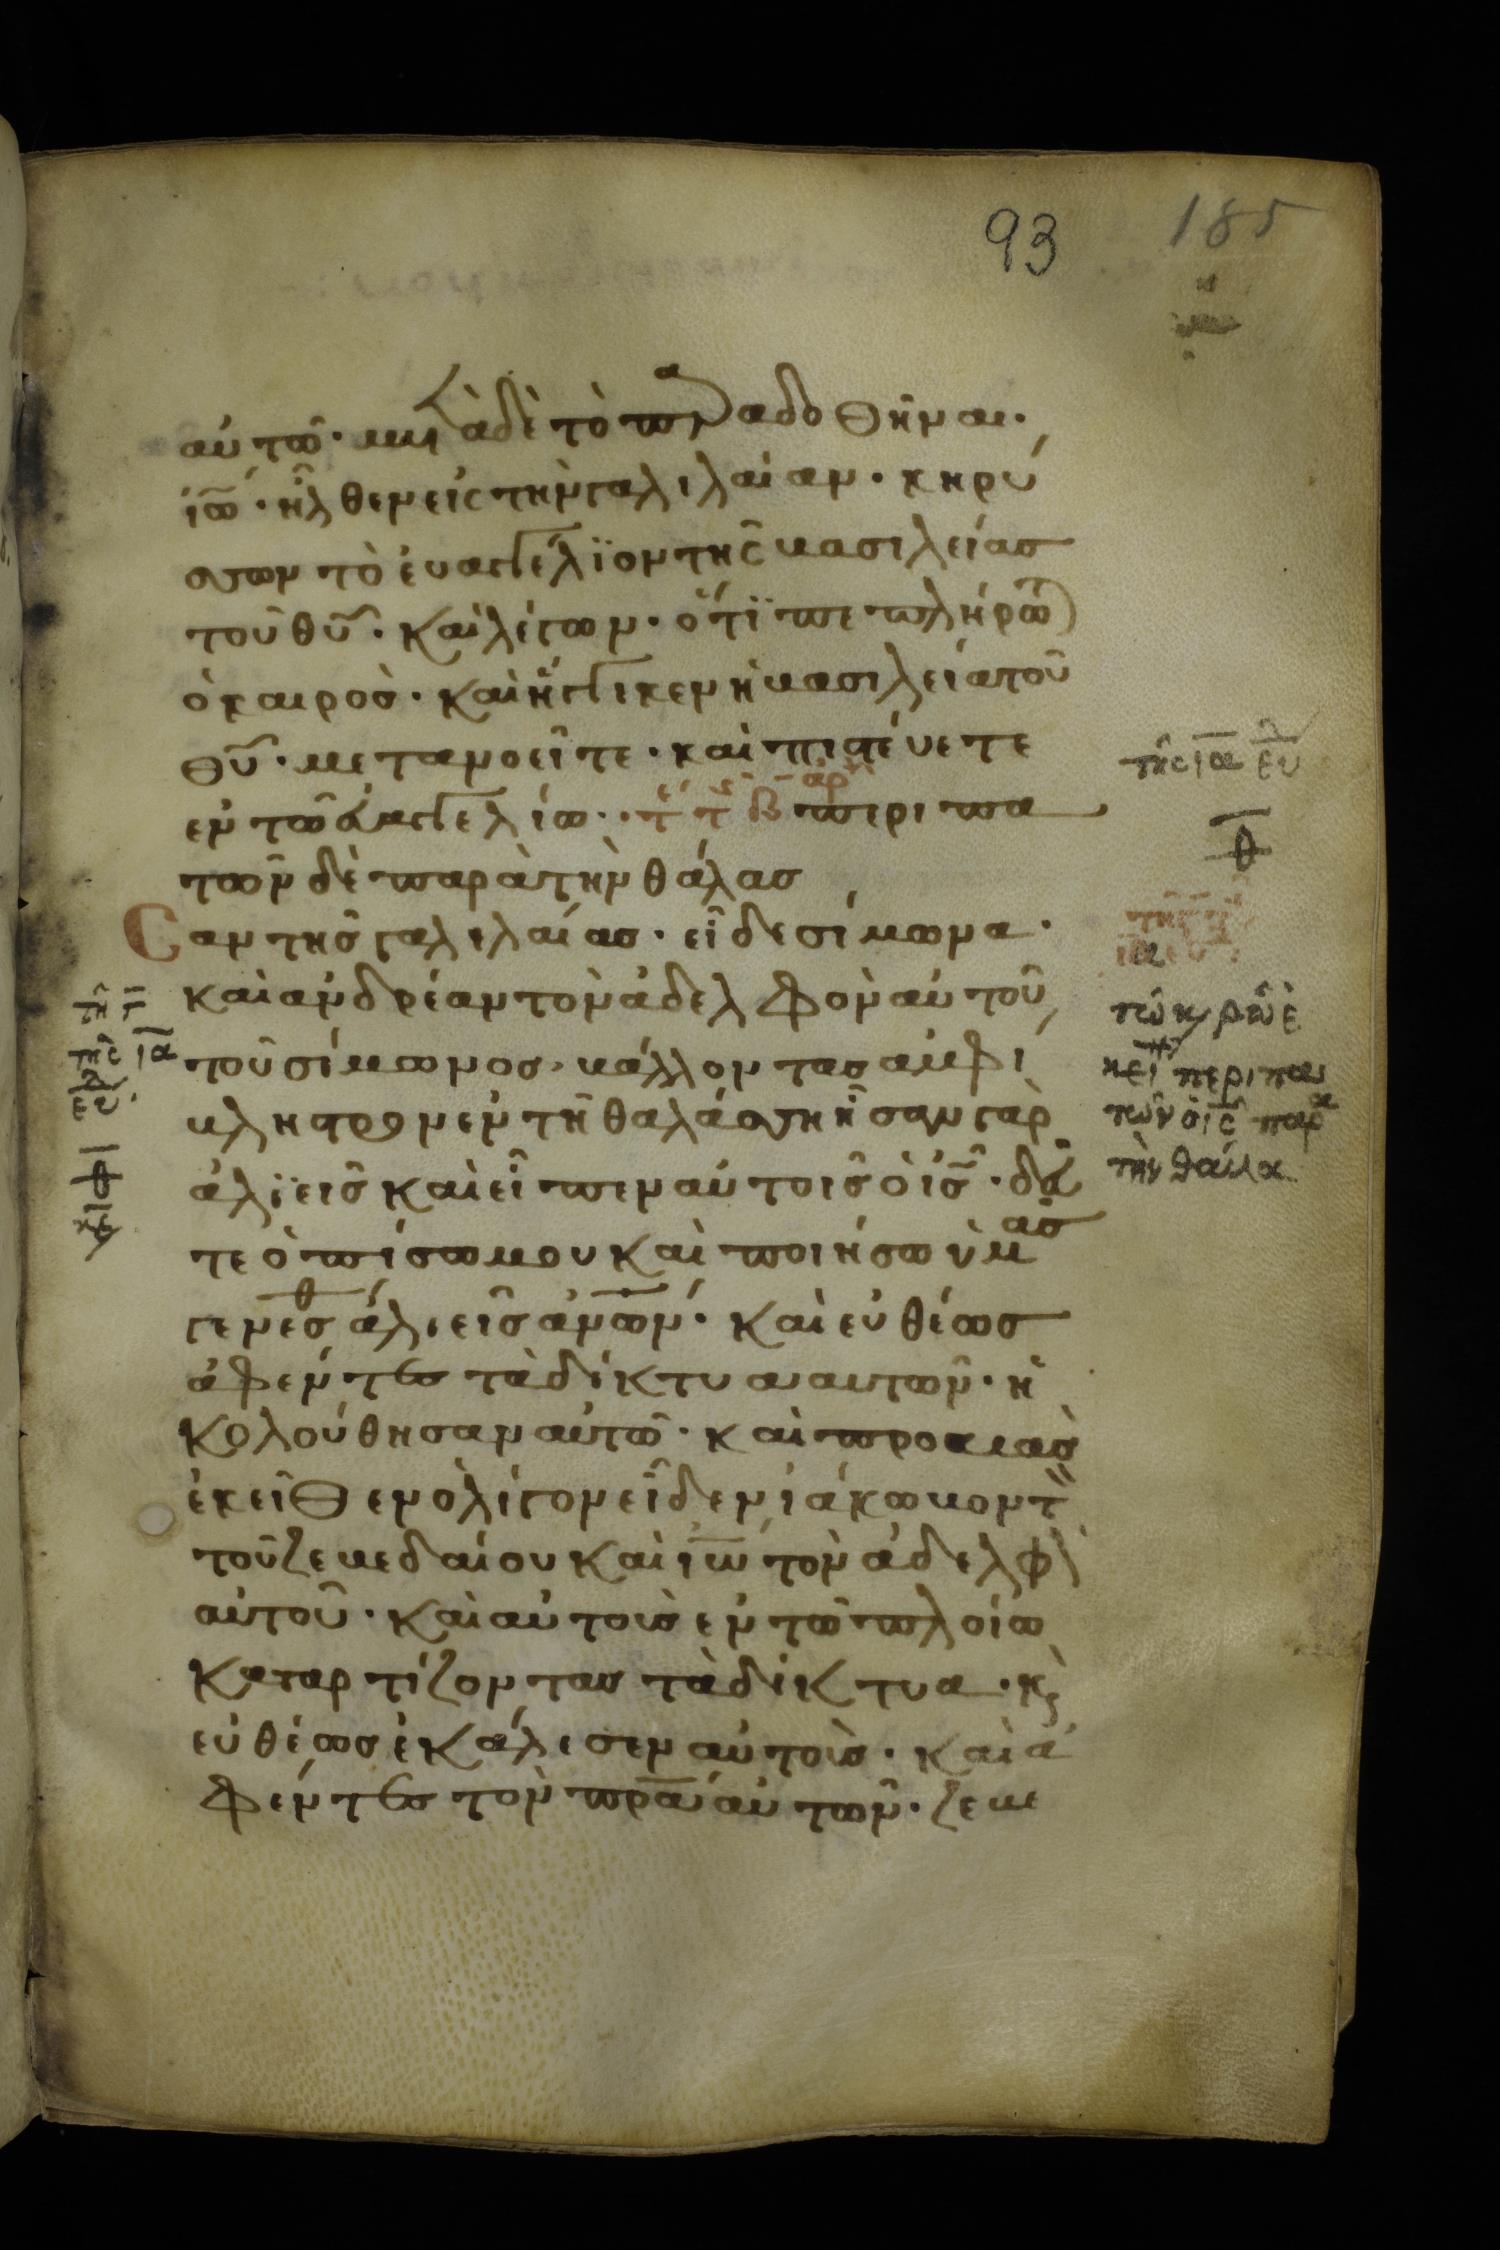 93
185
αὐτῶ· μετὰ δὲ τὸ παραδοθῆναι·
ἰῶ· ἦλθεν εἰς τὴν γαλιλαίαν· κηρύ
σσων τὸ ἐυαγγέλϊον τῆς βασιλείας
τοῦ θῦ· καὶ λέγων· ὅτϊ πεπλήρωτ
ὁ καιρὸσ· καὶ ἤγγικεν ἡ βασιλεία τοῦ
θῦ· μετανοεῖτε· καὶ πιστέυετε
ἐν τῶ ἐυαγγελίω· περιπα
τῶν δὲ παρὰ τὴν θάλασ
Σαν τῆς γαλιλαίασ· εἶδε σίμωνα·
καὶ ἀνδρέαν τὸν ἀδελφὸν αὐτοῦ
τοῦ σίμωνοσ· βάλλοντασ ἀμφί
βληστρον ἐν τῆ θαλάσση ἦσαν γὰρ
ἁλϊεῖσ καὶ εἶπεν αὐτοῖς ὁ ἰς· δεῦ
τε ὀπίσω μου καὶ ποιήσω ὑμᾶσ
γενέσθ ἁλιεῖσ ἀνων· καὶ ευθέωσ
ἀφέντεσ τὰ δίκτυα αυτῶν· ἠ
κολούθησαν αὐτῶ· καὶ προβὰσ
ἐκεῖθεν ὀλίγον εἶδεν ἰάκωβον τ
τοῦ ζεβεδαίου καὶ ἰω τὸν ἀδελφ
αὐτοῦ· καὶ αὐτοὺσ ἐν τῶ πλοίω
καταρτίζοντασ τὰ δίκτυα· κ
ευθέωσ ἐκάλεσεν αὐτοὺσ· καὶ ἀ
φέντεσ τὸν πρα αὐτῶν· ζεβε
τῆς ια ευ
θ
τῶ κρῶ ἐ
κεί περιπα
τῶν ὁ ις παρ
τὴν θάλα
τῆς ια
ευ